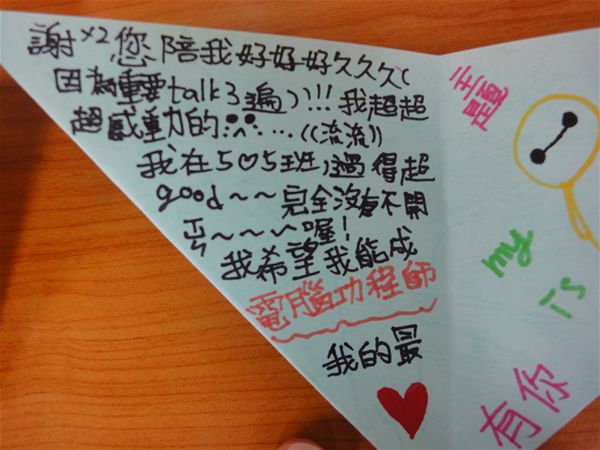 謝×2您陪我好好好久久久(
因為重要talk3遍)!!!我超超
超感動的...((流流))
我在505班過得超
good~~完全沒有不開
ㄒㄧㄣ~~~喔!
我希望我能成
電腦工程師
我的最
主題
my
Ts
有你